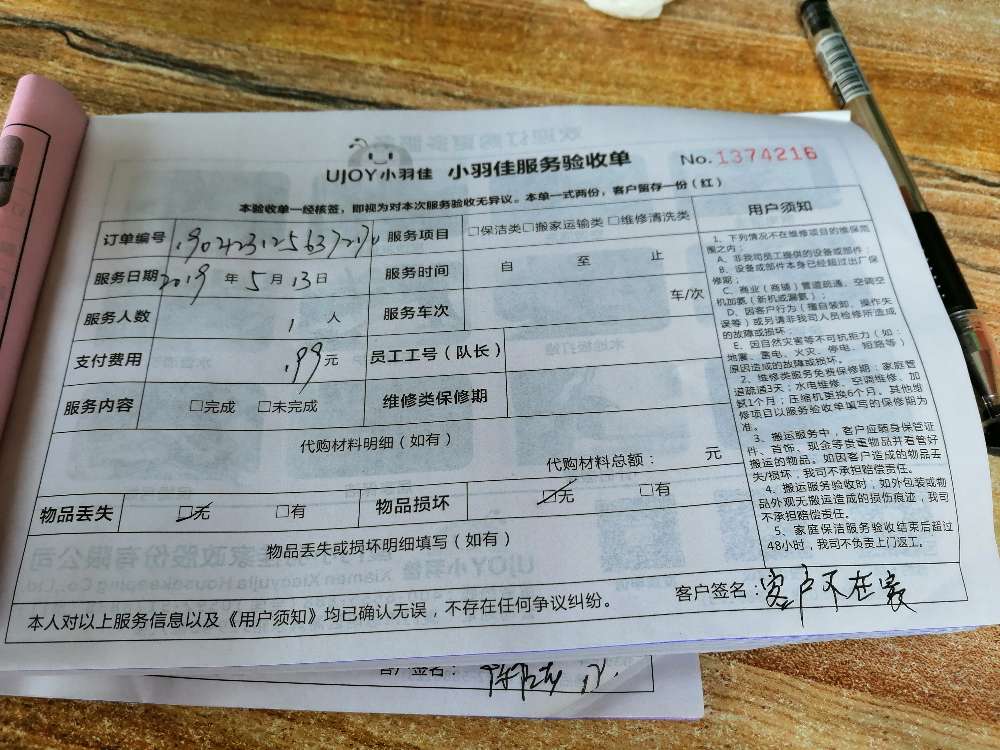 UJOY小羽佳 小羽佳服务验收单 No.1374216
本验收单一经核签，即视为对本次服务验收无异议。本单一式两份，客户留存一份（红）
订单编号 服务项目 □保洁类□搬家运输类□维修清洗类
服务日期 2019 年 5 月 13 日 服务时间 自 至 止
服务人数 1 人 服务车次 车/次
支付费用 199元 员工工号（队长）
服务内容 □完成 □未完成 维修类保修期
代购材料明细（如有）
代购材料总额： 元
物品丢失 □无 □有 物品损坏 □无 □有
物品丢失或损坏明细填写（如有）
本人对以上服务信息以及《用户须知》均已确认无误，不存在任何争议纠纷。
客户签名：客户不在家
用户须知
1、下列情况不在维修项目的维保范
围之内：
A、非我司员工提供的设备或部件；
B、设备或部件本身已经超过出厂保
修期；
C、商业（商铺）管道疏通、空调空
机加氨（新机或漏氨）；
D、因客户行为（擅自装卸、操作失
误等）或另请非我司人员检修所造成
的故障或损坏；
E、因自然灾害等不可抗拒力（如：
地震、雷电、火灾、停电、短路等）
原因造成的故障或损坏。
2、维修类服务免费保修期：家庭管
道疏通3天；水电维修、空调维修、加
氨1个月；压缩机更换6个月。其他维
修项目以服务验收单填写的保修期为
准。
3、搬运服务中，客户应随身保管证
件、首饰、现金等贵重物品并看管好
搬运的物品。如因客户造成的物品丢
失/损坏，我司不承担赔偿责任。
4、搬运服务验收时，如外包装或物
品外观无搬运造成的损伤痕迹，我司
不承担赔偿责任。
5、家庭保洁服务验收结束后超过
48小时，我司不负责上门返工。
客户签名：